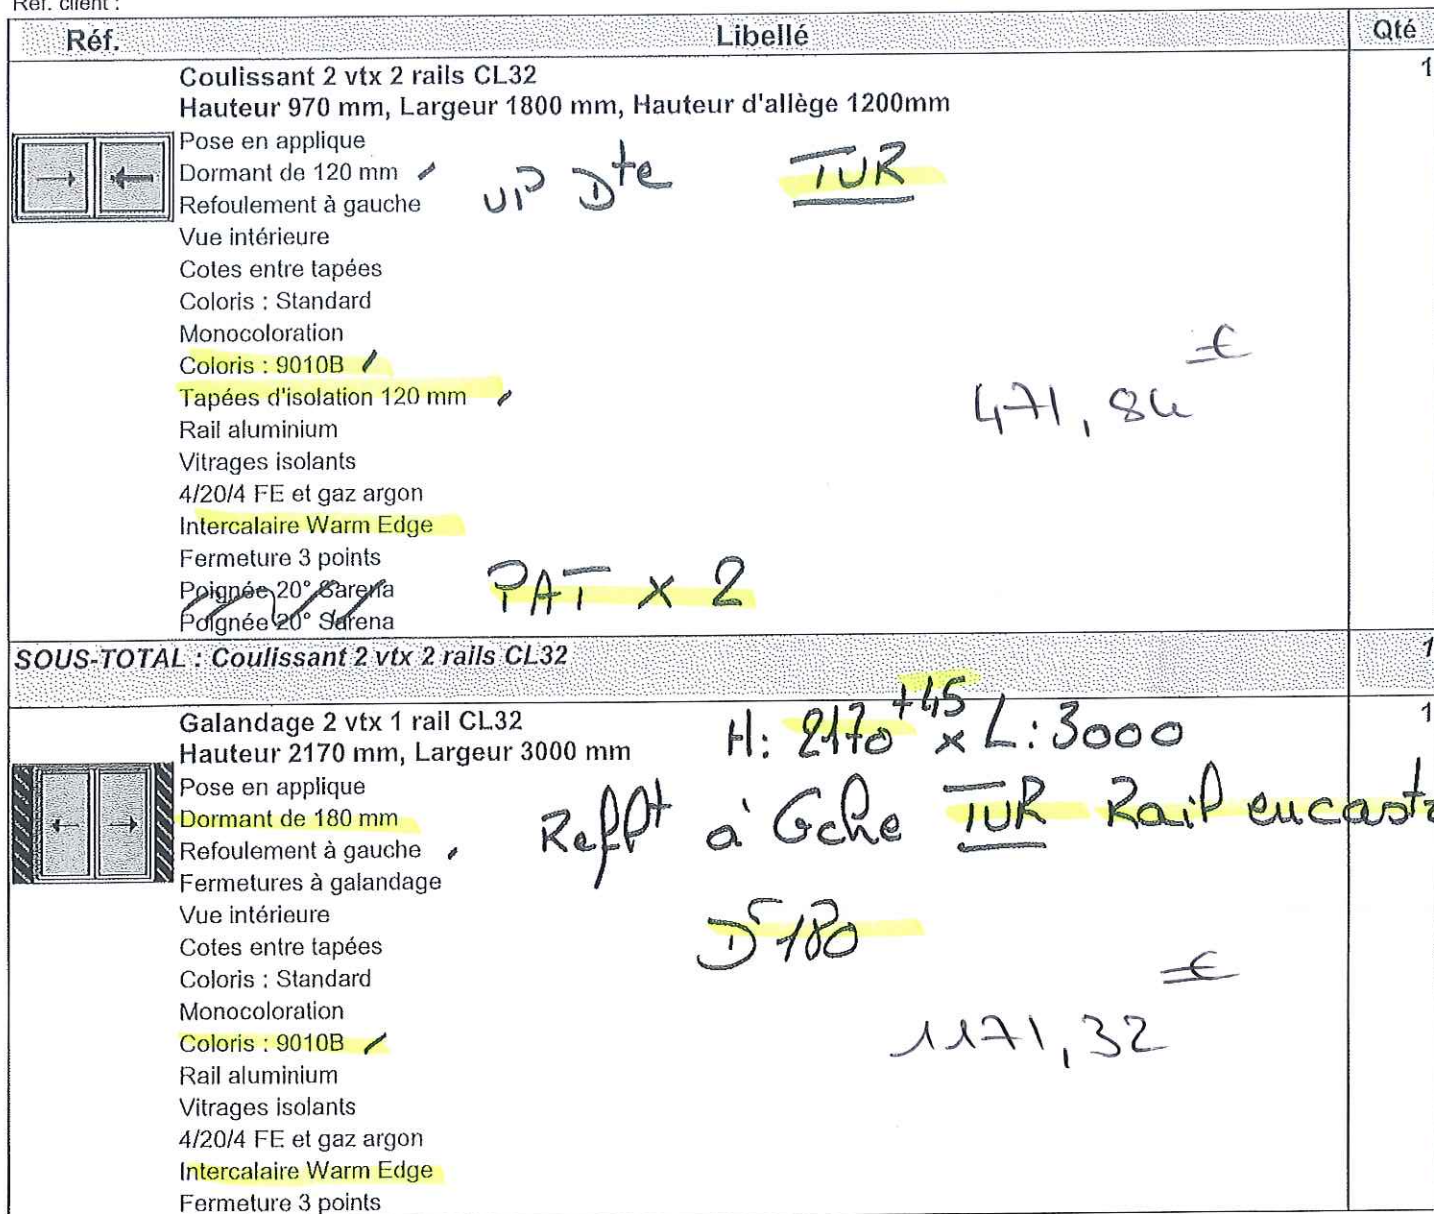 Réf. client :
Réf. Libellé Qté
Coulissant 2 vtx 2 rails CL32 1
Hauteur 970 mm, Largeur 1800 mm, Hauteur d'allège 1200mm
Pose en applique
Dormant de 120 mm
VIP Dte TUR
Refoulement à gauche
Vue intérieure
Cotes entre tapées
Coloris : Standard
Monocoloration
Coloris : 9010B
Tapées d'isolation 120 mm
471,84 €
Rail aluminium
Vitrages isolants
4/20/4 FE et gaz argon
Intercalaire Warm Edge
Fermeture 3 points
Poignée 20° Sarena
PAT x 2
Poignée 20° Sarena
SOUS-TOTAL : Coulissant 2 vtx 2 rails CL32 1
Galandage 2 vtx 1 rail CL32 1
Hauteur 2170 mm, Largeur 3000 mm
H: 2170 +45 x L: 3000
Pose en applique
Dormant de 180 mm
Reflt à Gche TUR Rail encast
Refoulement à gauche
Fermetures à galandage
Vue intérieure
Dt 180
Cotes entre tapées
Coloris : Standard
Monocoloration
1171,32 €
Coloris : 9010B
Rail aluminium
Vitrages isolants
4/20/4 FE et gaz argon
Intercalaire Warm Edge
Fermeture 3 points